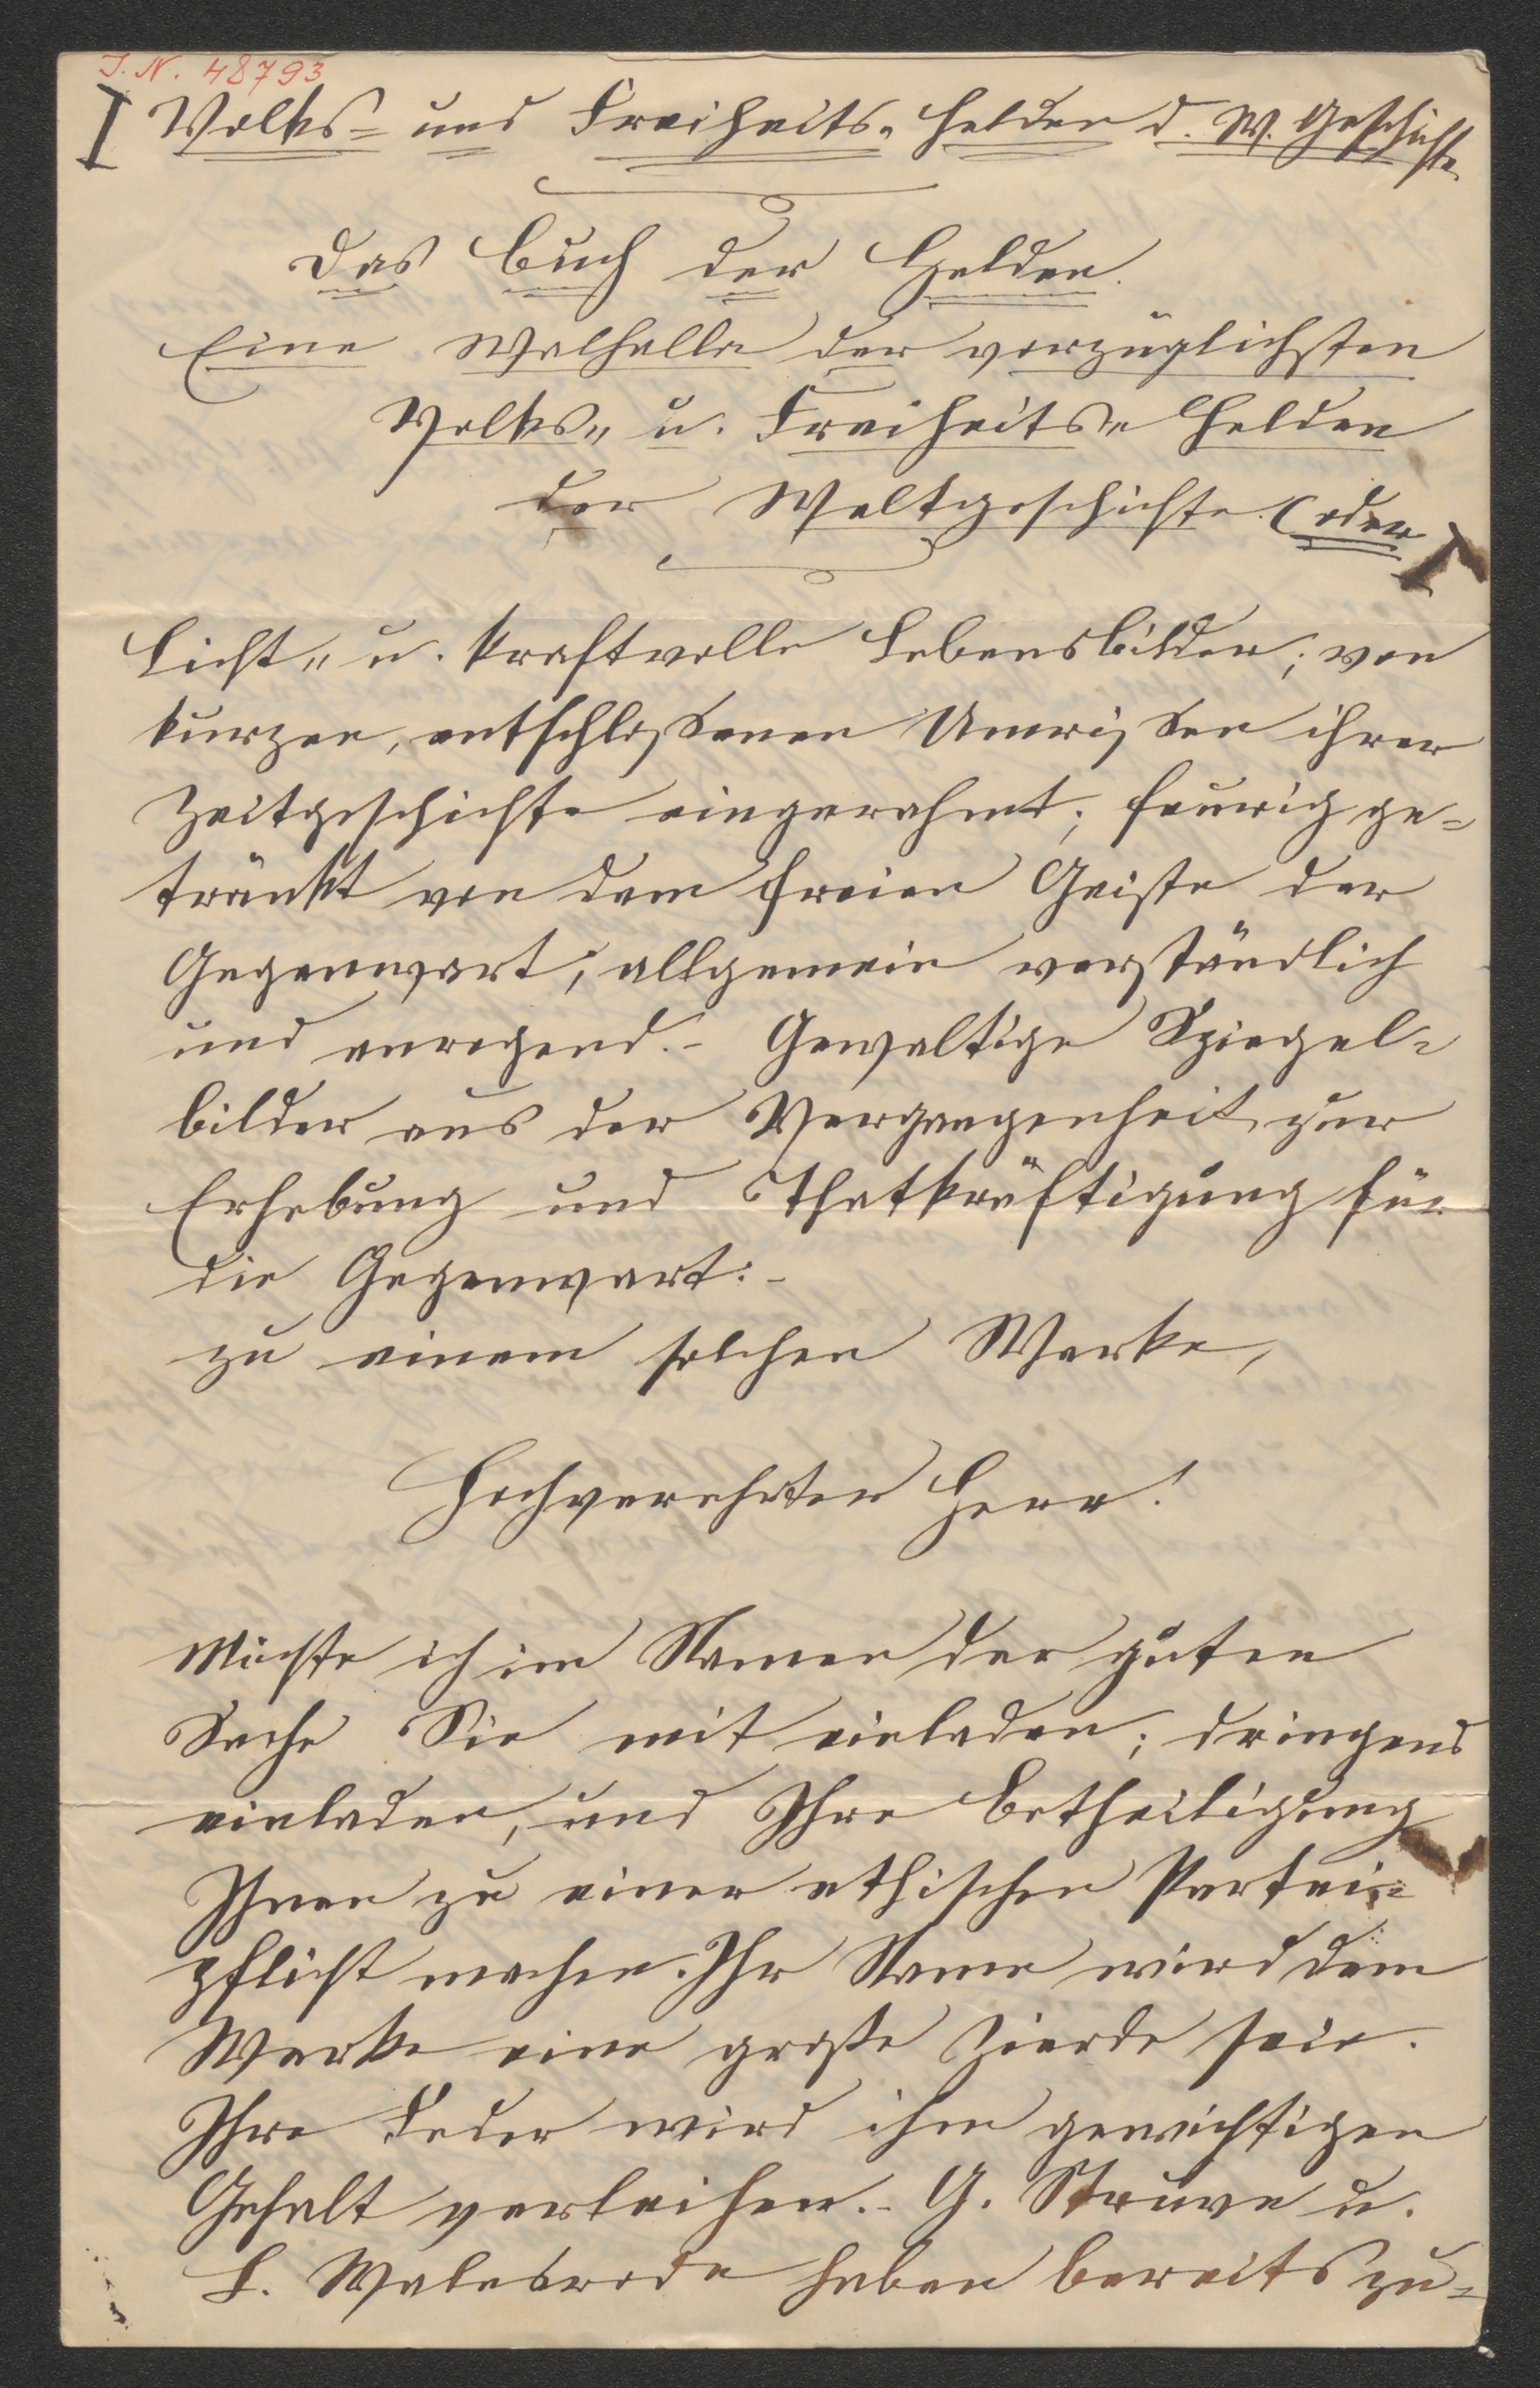 I. N. 48793
I Volks- und Freiheits-Helden d. W. Geschichte
Das Buch der Helden.
Eine Walhalla der vorzüglichsten
Volks- u. Freiheits-Helden
der Weltgeschichte. (oder
Licht- u. kraftvolle Lebensbilder; von
kurzen, entschlossenen Umrissen ihrer
Zeitgeschichte eingerahmt; feurig ge-
tränkt von dem freien Geiste der
Gegenwart; allgemein verständlich
und anregend.- Gewaltige Spiegel-
bilder aus der Vergangenheit zur
Erhebung und Thatkräftigung für
die Gegenwart:-
zu einem solchen Werke,
Hochverehrter Herr!
Möchte ich im Namen der guten
Sache Sie mit einladen; dringend
einladen, und Ihre Betheiligung
Ihnen zu einer ethischen Partei-
pflicht machen. Ihr Name wird dem
Werke eine große Zierde sein.
Ihre Feder wird ihm gewichtigen
Gehalt verleihen.- G. Struve u.
L. Walesrode haben bereits zu-